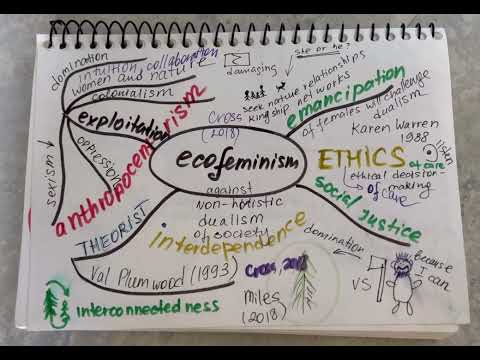 domination
intuition, collaboration
women and nature
colonialism
exploitation
oppression
sexism
anthropocentrism
damaging
she or he?
seek nature relationships
kingship networks
emancipation
of females will challenge
dualism
Karen Warren
1988
Cross
(2018)
ecofeminism
against
non-holistic
dualism
of society
ETHICS
of care
listen
ethical decision-
making
of care
social justice
THEORIST
Val Plumwood (1993)
interdependence
Cross, 2018
Miles
(2018)
interconnectedness
domination
VS
because
I can